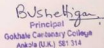 BVShettigar
Principal
Gokhale Centenary College
Ankola (U.K.) 581 314